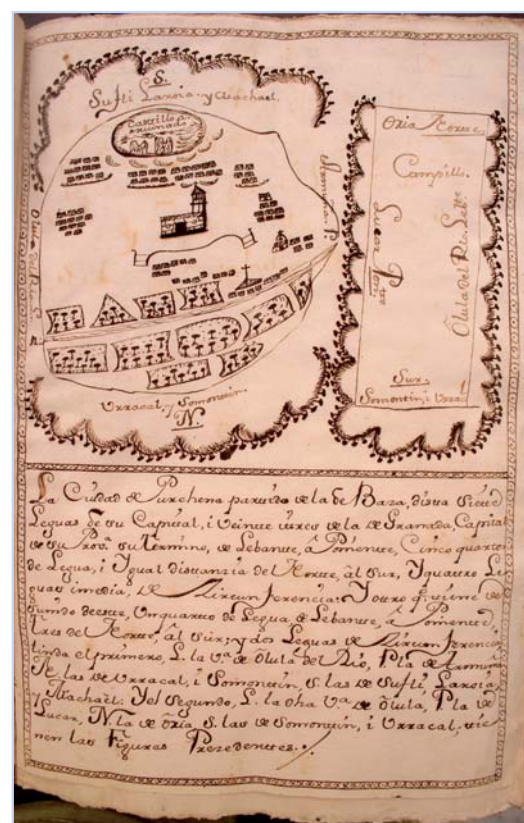 S.
Sufli Laroia. y Machael.
Castillo a
ruinado
Olula del Rio
Urracal, y Somontin.
N.
Oria Norte.
Campillo.
Lucar Pte
Olula del Rio. Lebte
Sur.
Somontin, i Urracal
La Ciudad de Purchena partido de la de Baza, dista siete
Leguas de su Capital, i veinte itres de la de Granada, Capital
de su Prova. su termino, de Lebante, â Pōniente, Cinco quartos
de Legua, i Ygual distanzia del Norte, âl Sur, Yquatro Le
guas imedia, de Zircunferencia: Yotro q̃ viene de
de este, Unquarto de Legua de Lebante, â Poniente,
tres del Norte, âl Sur; y dos Leguas de Zircunferencia:
linda el primero, L. la Va. de Ôlula del Rio, P. la de
N. las de Urracal, i Somontin, S. las de Sufli, Laroia,
y Machaêl: Yel segundo, L. la dha Va. de Ôlula, P. la de
Lucar, N. la de Ôria, S. las de Somontin, i Urracal, vie
nen las Figuras Prezedentes.